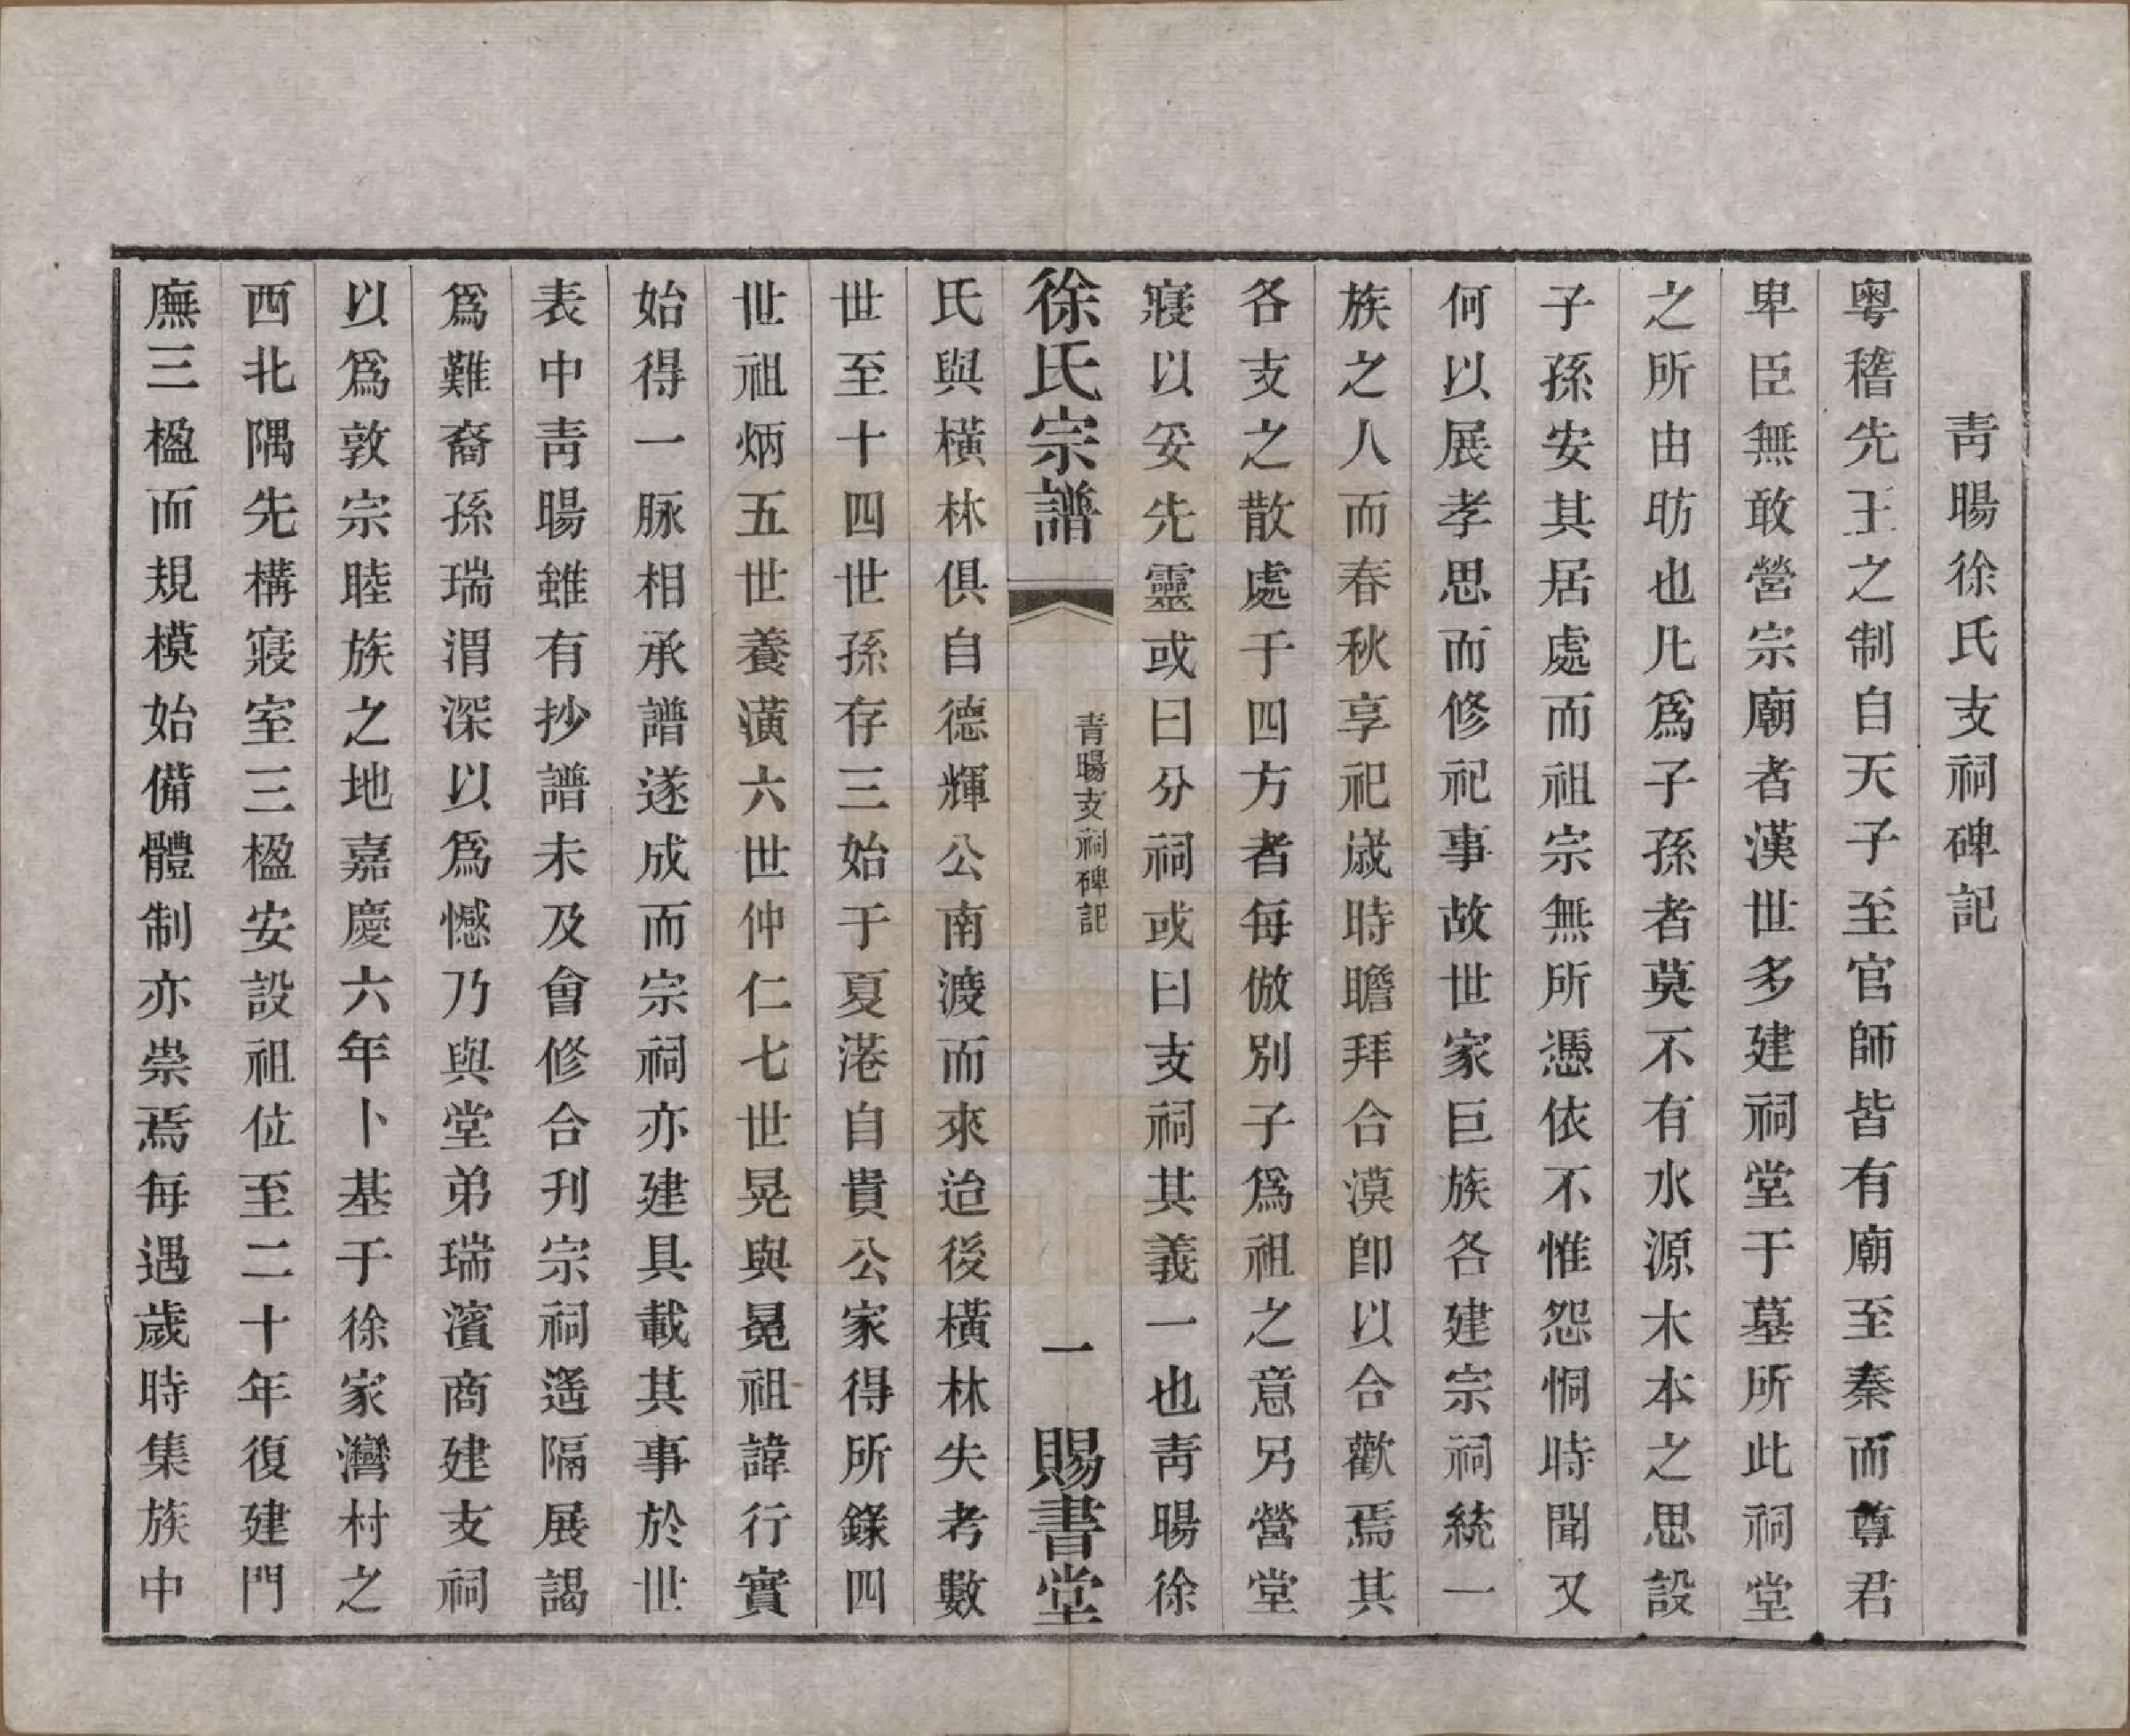 青暘徐氏支祠碑記
粵稽先王之制自天子至官師皆有廟至秦而尊君
卑臣無敢營宗廟者漢世多建祠堂于墓所此祠堂
之所由昉也凡爲子孫者莫不有水源木本之思設
子孫安其居處而祖宗無所憑依不惟怨恫時聞又
何以展孝思而修祀事故世家巨族各建宗祠統一
族之人而春秋享祀歲時瞻拜合漠卽以合歡焉其
各支之散處于四方者每倣別子爲祖之意另營堂
寢以妥先靈或曰分祠或曰支祠其義一也靑暘徐
徐氏宗譜
青暘支祠碑記
一
賜書堂
氏與橫林俱自德輝公南渡而來迨後橫林失考數
世至十四世孫存三始于夏港自貴公家得所錄四
世祖炳五世養潢六世仲仁七世晃與冕祖諱行實
始得一脉相承譜遂成而宗祠亦建具載其事於世
表中靑暘雖有抄譜未及會修合刋宗祠遙隔展謁
爲難裔孫瑞渭深以爲憾乃與堂弟瑞濱商建支祠
以爲敦宗睦族之地嘉慶六年卜基于徐家灣村之
西北隅先構寢室三楹安設祖位至二十年復建門
廡三楹而規模始備體制亦崇焉每遇歲時集族中